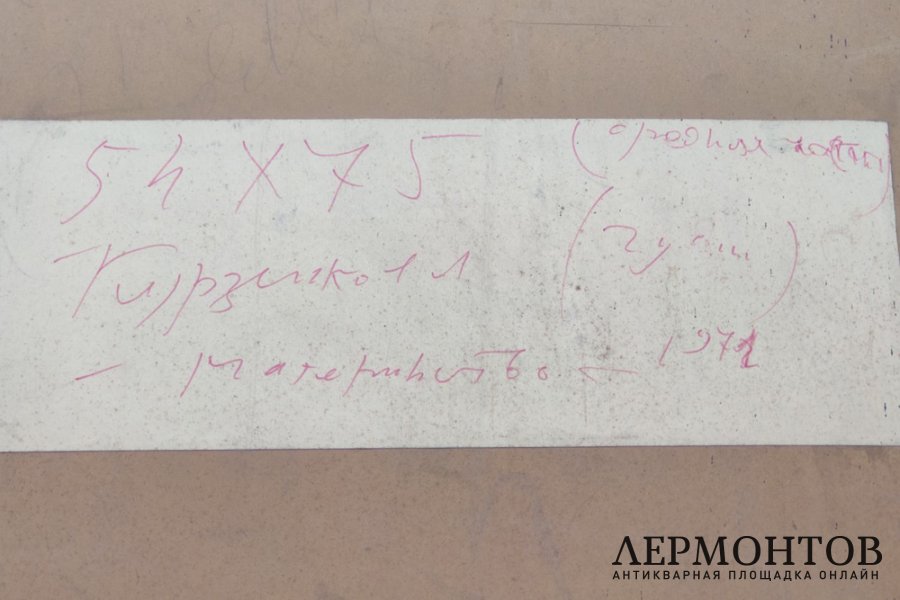 54 X 75
(средняя часть)
(гуашь)
— материнство — 1971
ЛЕРМОНТОВ
АНТИКВАРНАЯ ПЛОЩАДКА ОНЛАЙН